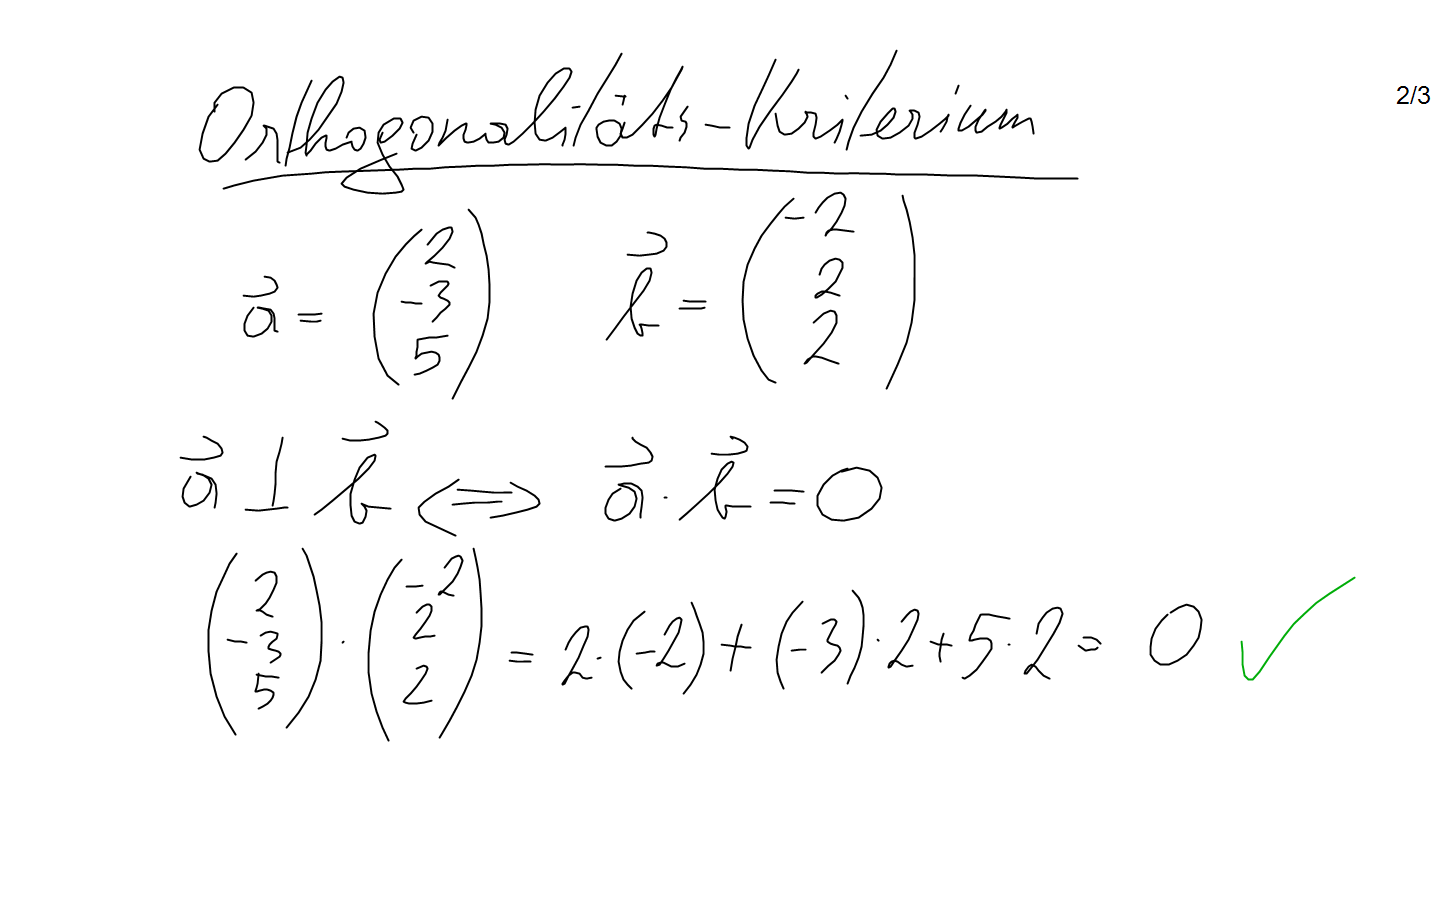 Orthogonalitäts-Kriterium
2/3
a⃗ = (2 -3 5) b⃗ = (-2 2 2)
a⃗ ⊥ b⃗ <=> a⃗ · b⃗ = 0
(2 -3 5) · (-2 2 2) = 2·(-2) + (-3)·2 + 5·2 = 0 ✓